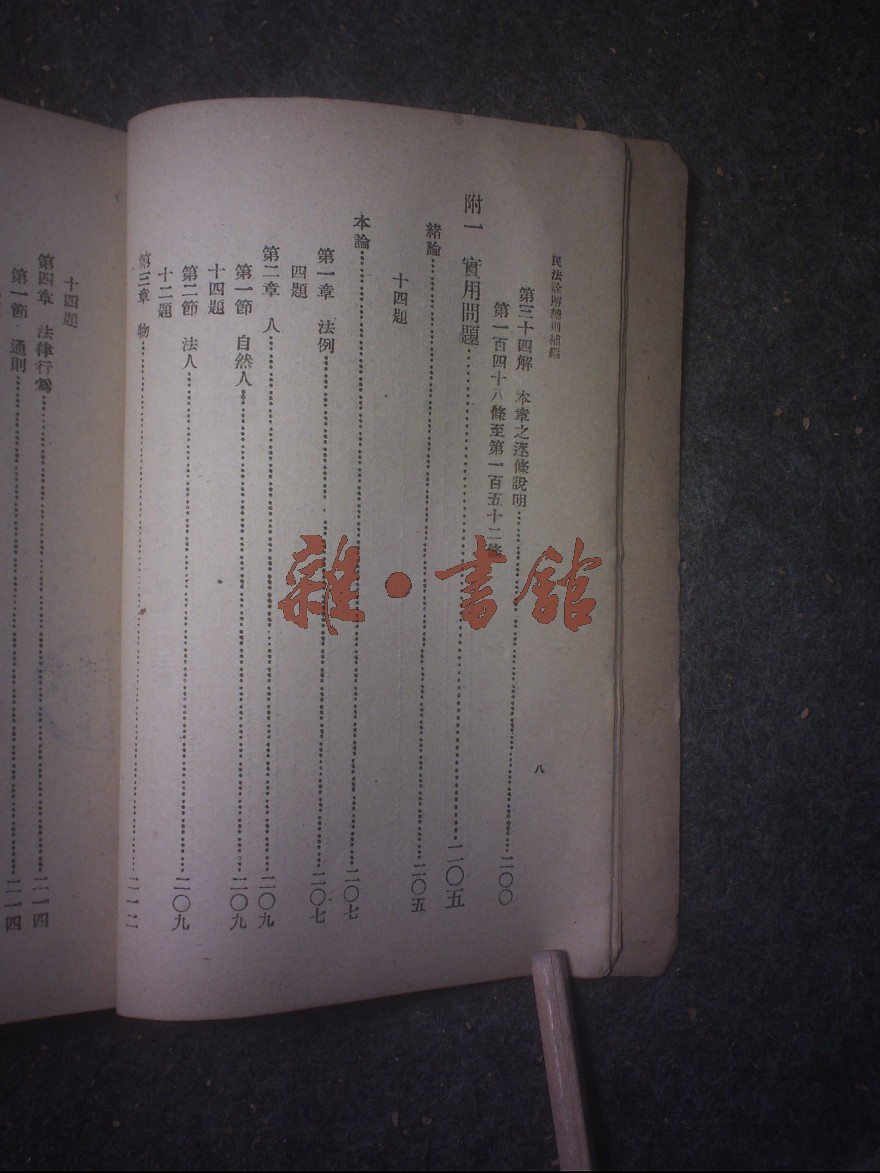 民法詮解總則補編
八
第三十四解 本章之逐條說明……二〇〇
第一百四十八條至第一百五十二條
附一 實用問題……二〇五
緒論……二〇五
十四題
本論……二〇七
第一章 法例……二〇七
四題
第二章 人……二〇九
第一節 自然人……二〇九
十四題
第二節 法人……二〇九
十二題
第三章 物……二一二
十四題
第四章 法律行爲……二一四
第一節 通則……二一四
雜·書館